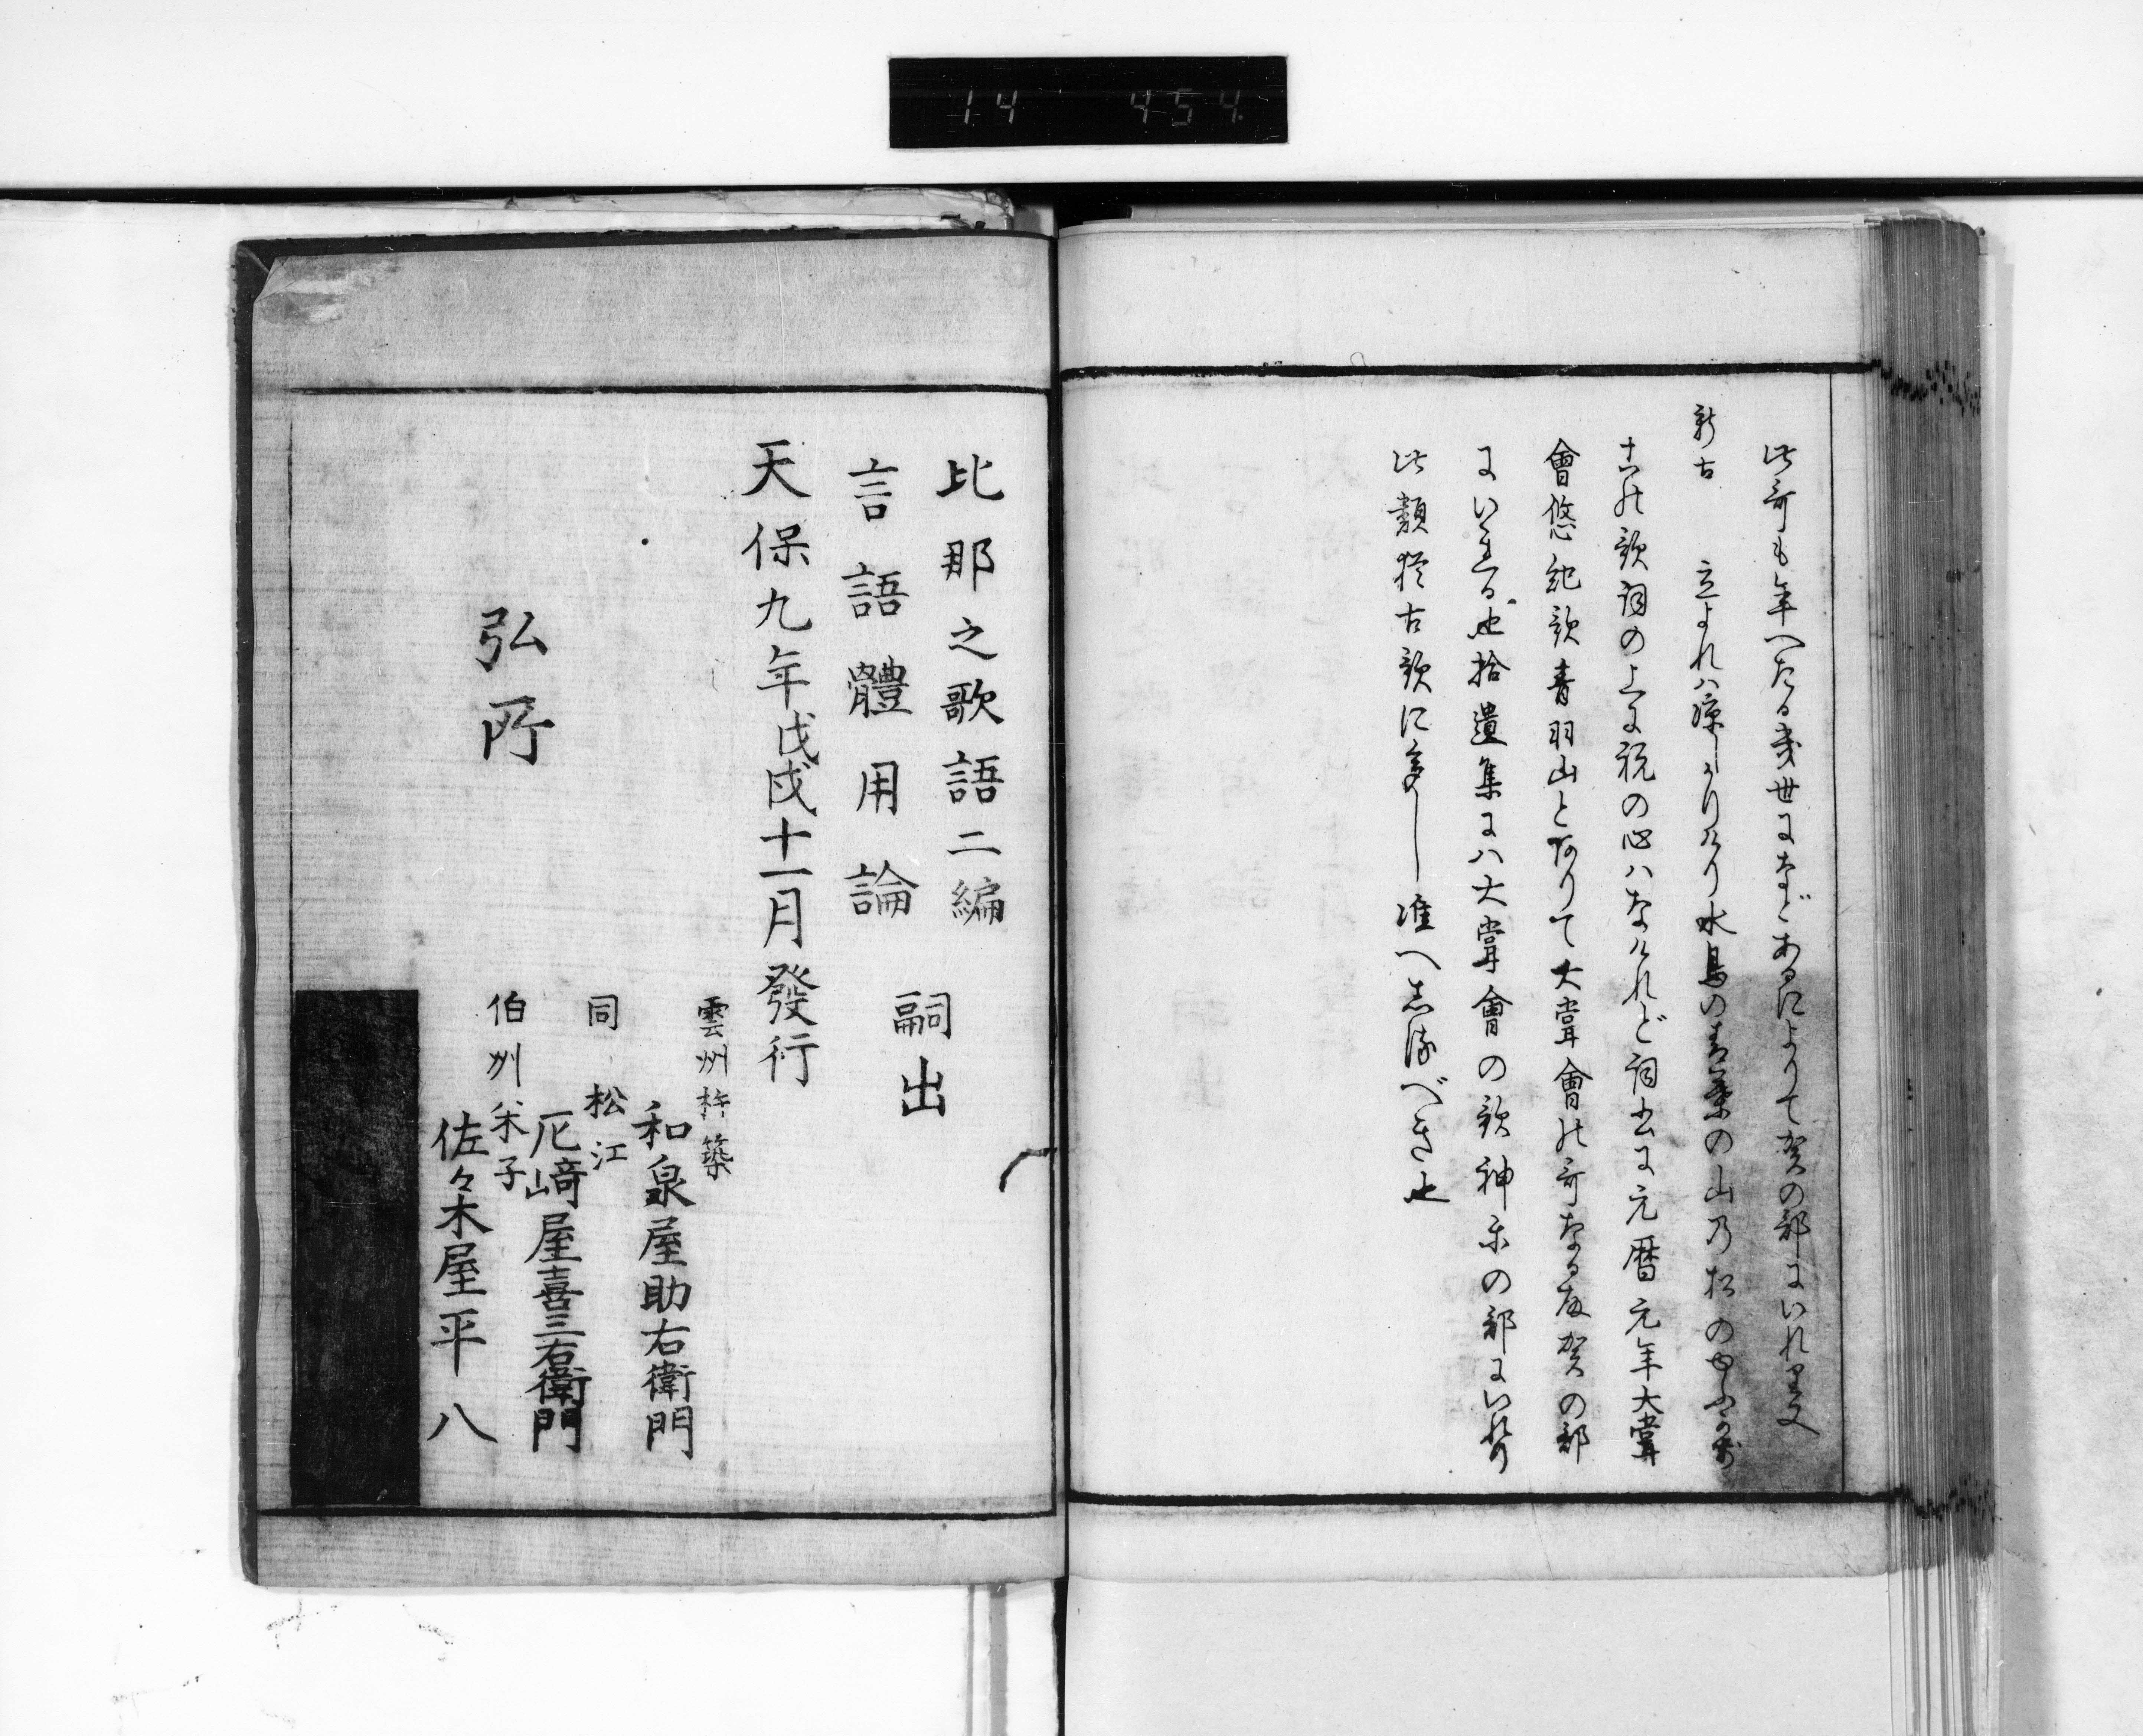 14 454
此哥も年へたる幾世になどあるによりて賀の部にいれり又
新古 立よれハ凉しかりけり水鳥の青葉の山乃松のゆふ風
古れ歌詞の上に祝の心ハなけれど詞書に元暦元年大甞
會悠紀歌青羽山とありて大甞會れ哥なる故賀の部
にいれる也拾遺集にハ大甞會の歌神樂の部にいれり
此類猶古歌に多し准へしるべき也
比那之歌語二編
言語體用論
嗣出
天保九年戊戌十一月發行
弘所
雲州杵築
和泉屋助右衛門
同 松江
尼﨑屋喜三右衛門
伯州米子
佐々木屋平八